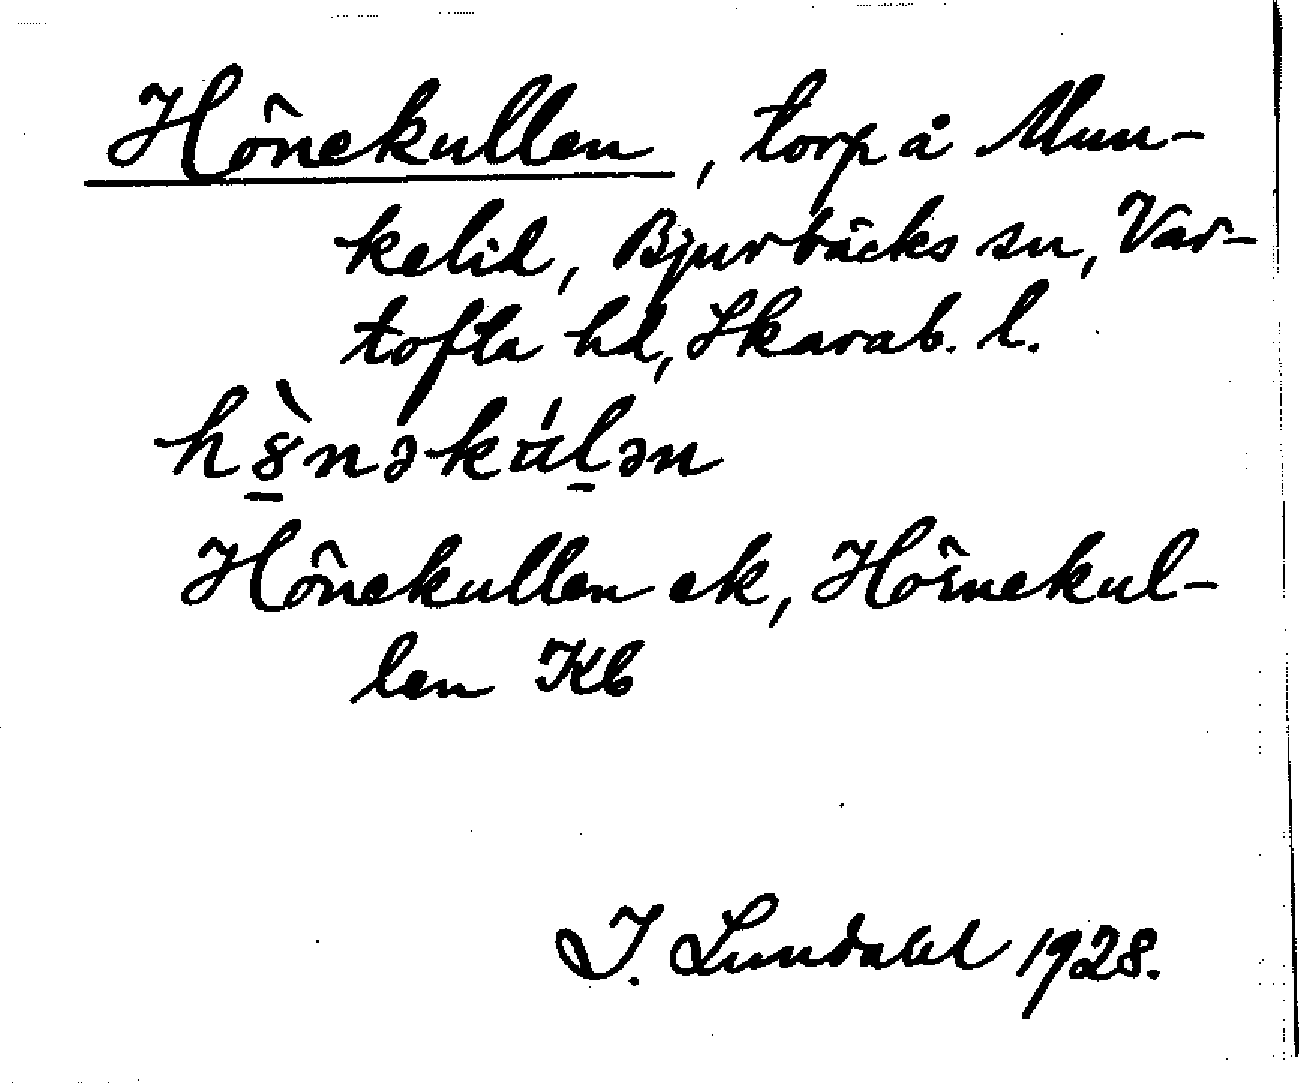 Hönekullen, torp å Mun-
kelid, Bjurbäcks sn, Var-
tofta hd, Skarab. l.
hö̀nəkúlən
Hönekullen ek, Hörnekul-
len Kb
I. Lundahl 1928.